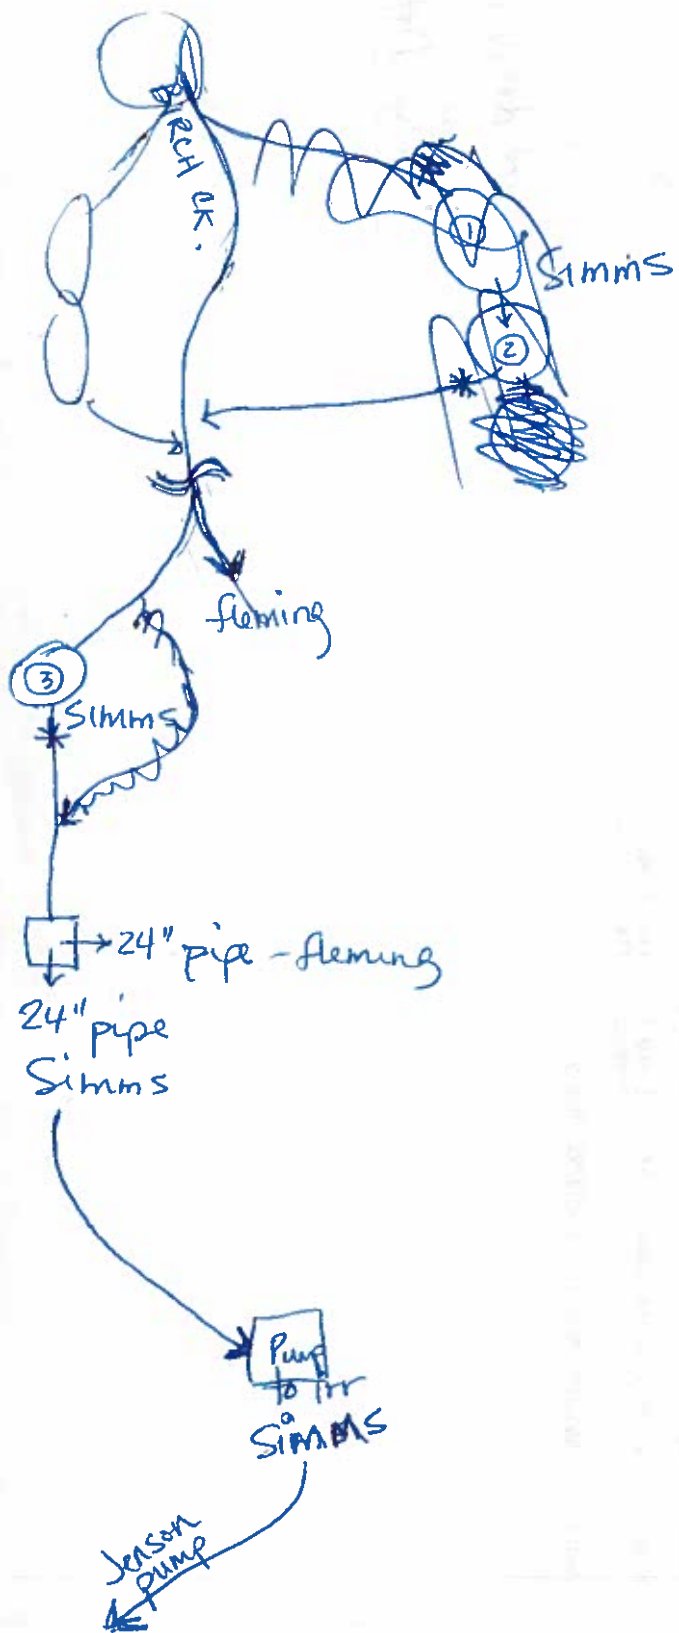 RCH CK.
1
Simms
2
fleming
3
Simms
24" pipe - fleming
24" pipe
Simms
Pump
to Irr
Simms
Jenson
pump